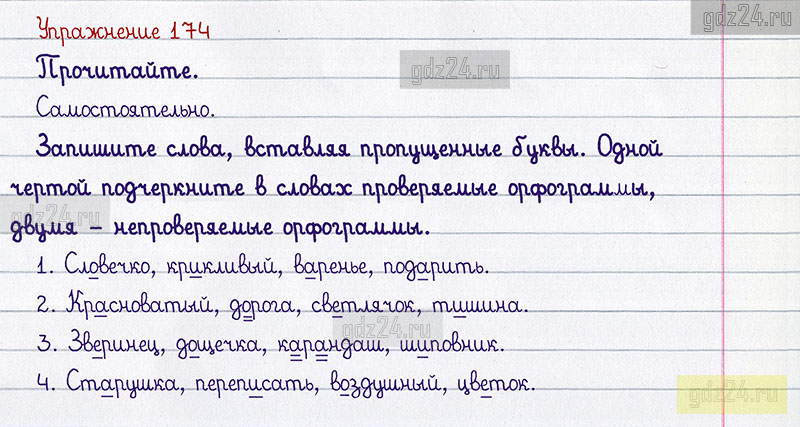 gdz24.ru
Упражнение 174
Прочитайте.
gdz24.ru
Самостоятельно.
Запишите слова, вставляя пропущенные буквы. Одной
чертой подчеркните в словах проверяемые орфограммы,
gdz24.ru
двумя – непроверяемые орфограммы.
1. Словечко, крикливый, варенье, подарить.
2. Красноватый, дорога, светлячок, тишина.
gdz24.ru
3. Зверинец, дощечка, карандаш, шиповник.
4. Старушка, переписать, воздушный, цветок.
gdz24.ru